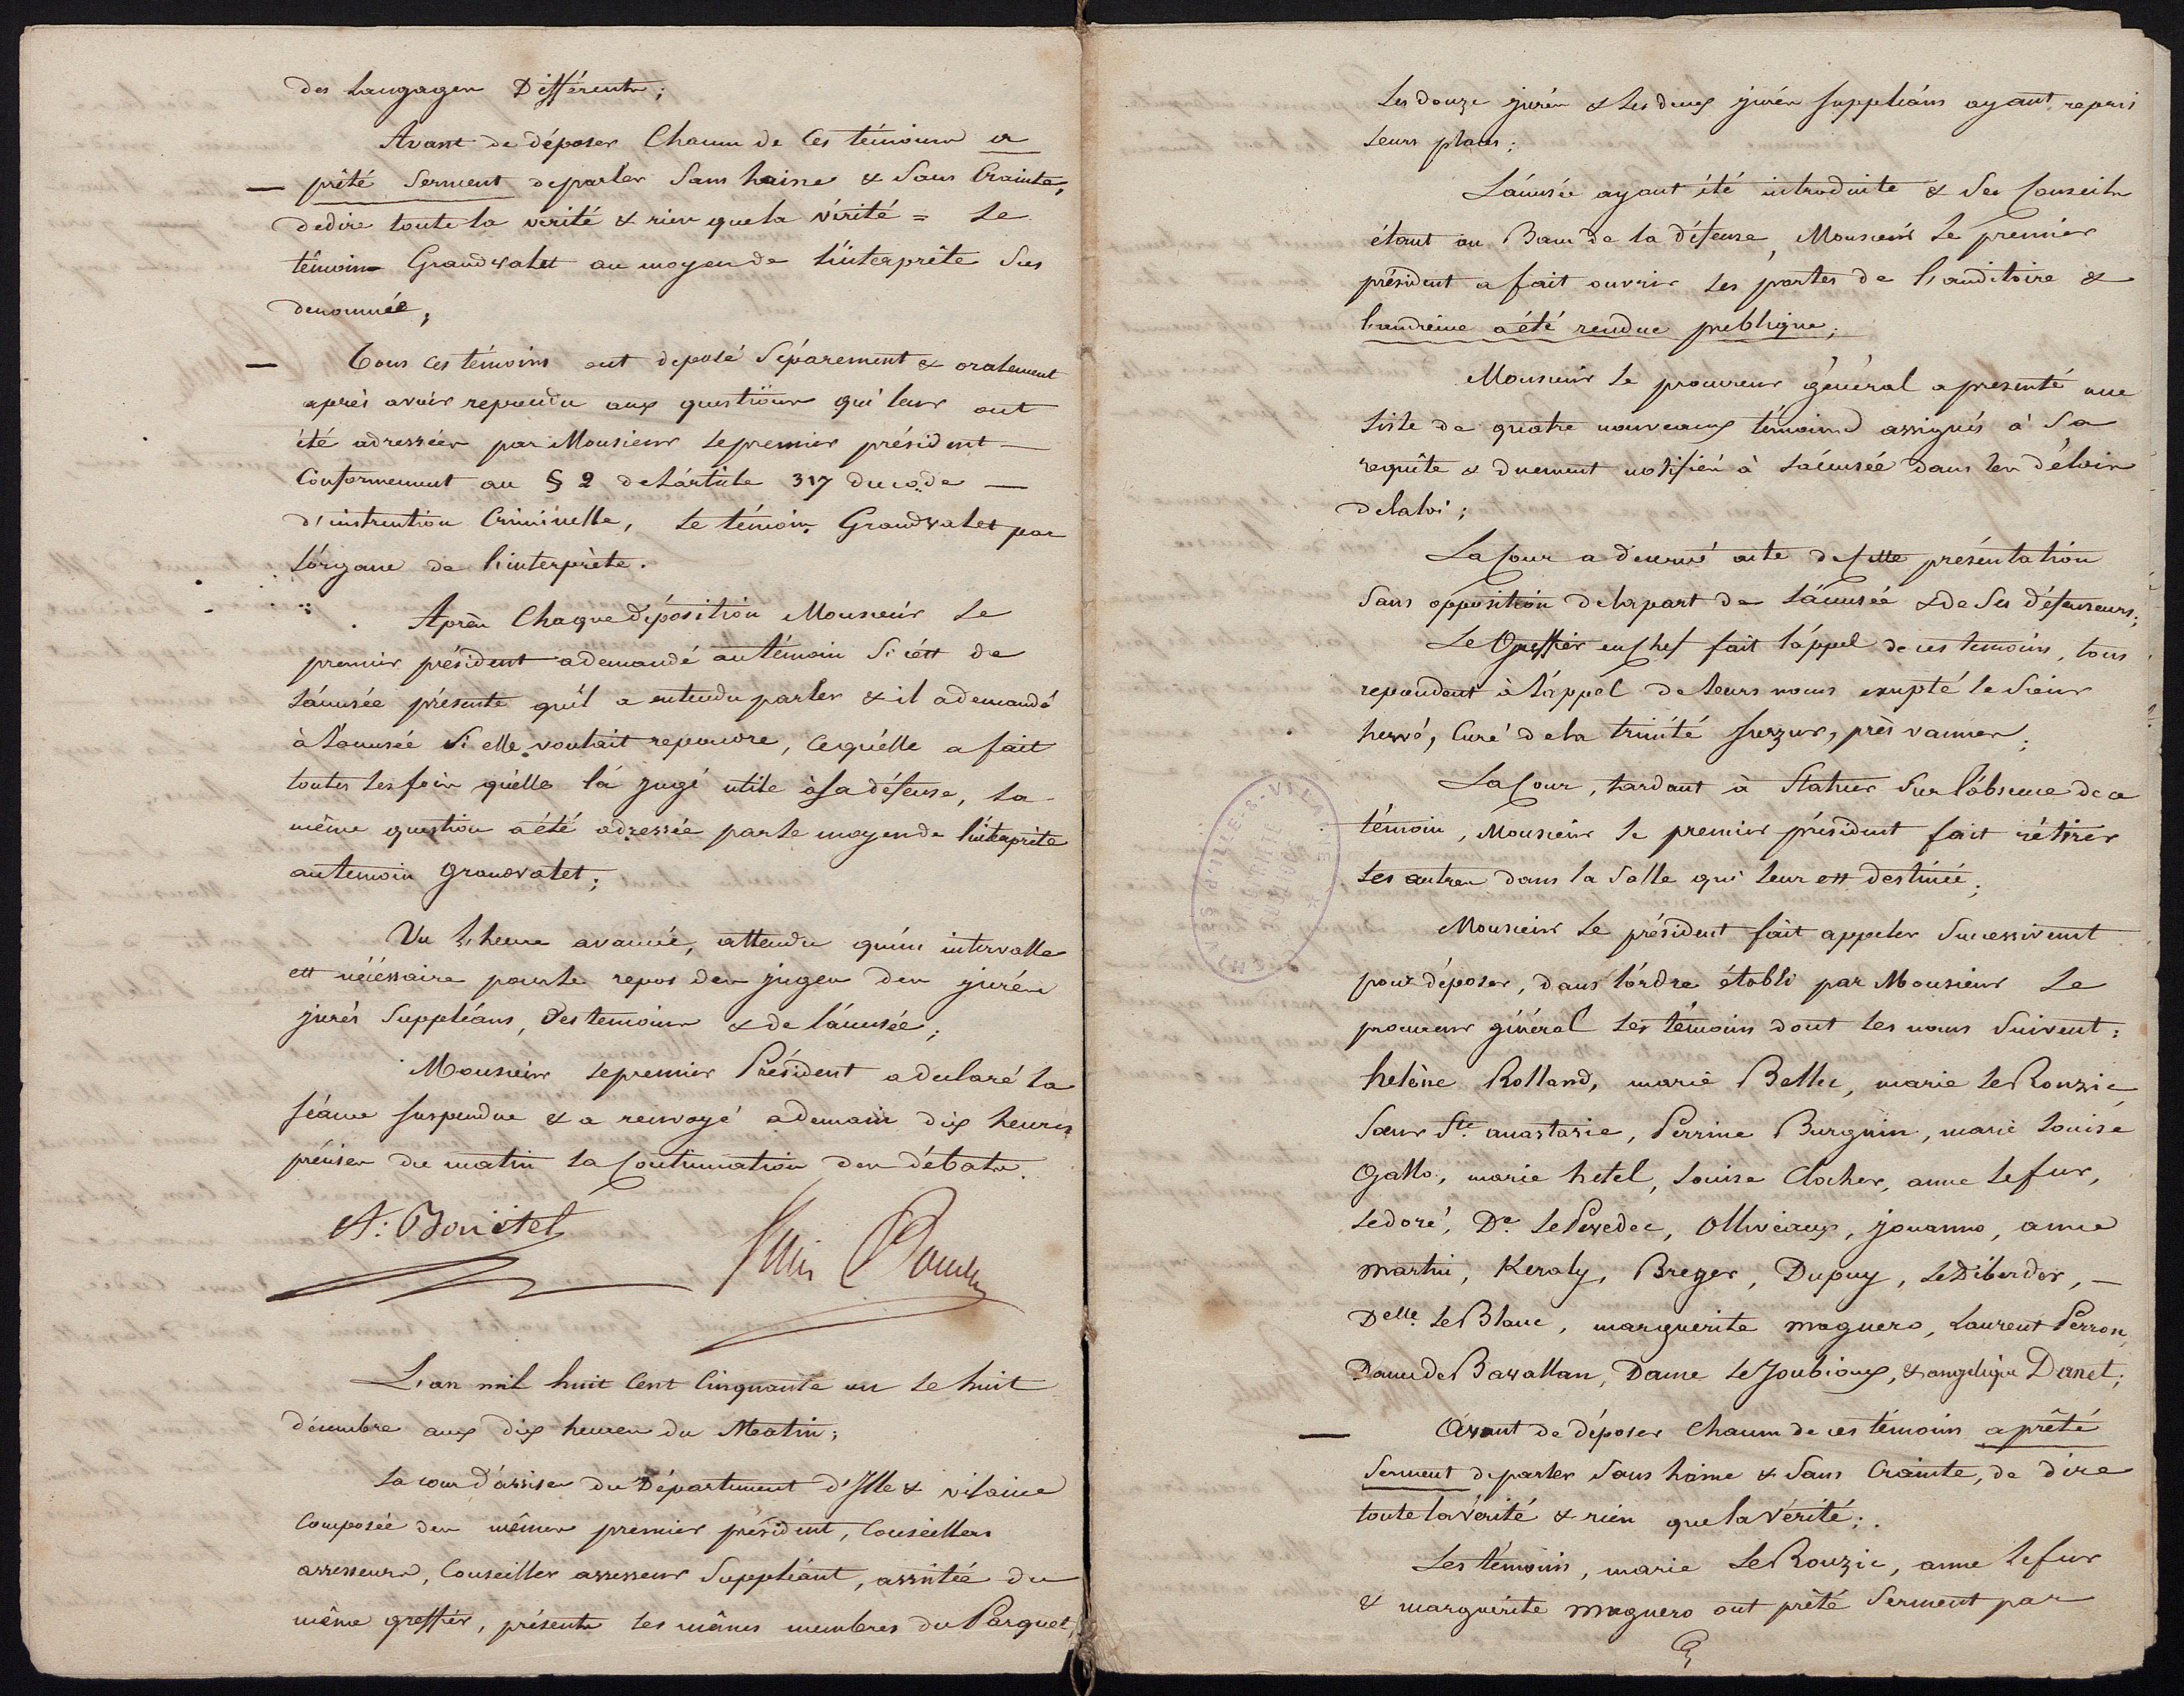 des langages Différents;
Avant de déposer Chacun de ces témoins a
— prêté Serment de parler Sans haine & Sans Crainte,
de dire toute la vérité & rien que la vérité = Le
témoin Grandvalet au moyen de L'interprête Sus
denommée,
— Tous ces témoins ont deposé Séparement & oralement
après avoir repondu aux questions qui leur ont
été adressées par Monsieur le premier président —
Conformement au § 2 de L'article 317 du code —
d'instruction Criminelle, Le témoin Grandvalet par
L'organe de l'interprète.
Après Chaque Déposition Monsieur Le
premier président a demandé au témoin Si c'est de
L'accusée présente qu'il a entendu parler & il a demandé
à L'accusée Si elle voulait repondre, Ce qu'elle a fait
toutes les fois qu'elle l'a jugé utile à Sa défense, La
même question a été adressée par le moyen de l'interprète
au temoin Grandvalet;
Vu L'heure avancée, attendu qu'un intervalle
est nécessaire pour le repos des juges des jurés
jurés Suppléans, Des temoins & de l'accusée;
Monsieur Le premier Président a declaré La
séance suspendue & a renvoyé a demain dix heures
précises du matin La Continuation des débats.
A: Bouëtel
L'an mil huit Cent Cinquante un Le huit
décembre aux dix heures du Matin;
La cour d'assises du Département d'Ille & vilaine
Composée des mêmes premier président, Conseillers
assesseurs, Conseiller assesseur Suppléant, assistée du
même greffier, présents les mêmes membres du Parquet,
Les douze jurés & Les deux jurés suppléans ayant repris
Leurs places;
L'accusée ayant été introduite & Ses Conseils
étant au Banc de la défense, Monsieur le premier
président a fait ouvrir Les portes de l'auditoire &
l'audience a été rendue publique;
Monsieur Le procureur général a presenté une
Liste de quatre nouveaux témoins assignés à Sa
requête & duement notifiés à L'accusée dans les délais
de la loi;
La Cour a donné acte de Cette présentation
Sans opposition de la part de L'accusée & de Ses défenseurs;
Le Greffier en Chef fait l'appel de ces temoins, tous
repondent à L'appel de Leurs noms excepté le Sieur
hervé, Curé de la trinité Surzur, près vannes;
La Cour, tardant à Statuer Sur l'absence de ce
témoin, Monsieur Le premier président fait rétirer
Les autres dans la Salle qui leur est destinée;
Monsieur Le président fait appeler Successivement
pour déposer, dans l'ordre établi par Monsieur Le
procureur général Les témoins dont les noms Suivent:
helène Rolland, marie Bellec, marie Le Rouzic
Sœur Ste anastasie, Perrine Burguin, marie Louise
Gallo, marie hetel, Louise Clocher, anne Lefur,
Ledoré, De. Le Puedec, Olliveaux, jouanno, anne
Martin, Keraly, Breger, Dupuy, LeDiberder, —
Delle Le Blanc, marguerite maguero, Laurent Perron,
Dame de Bavallan, Dame Le Joubioux, & angelique Danet;
— Avant de déposer Chacun de ces témoins a prêté
Serment de parler Sans haine & Sans Crainte, de dire
toute la Vérité & rien que la Vérité;
Les témoins, marie Le Rouzic, anne Lefur
& marguerite maguero ont prêté Serment par